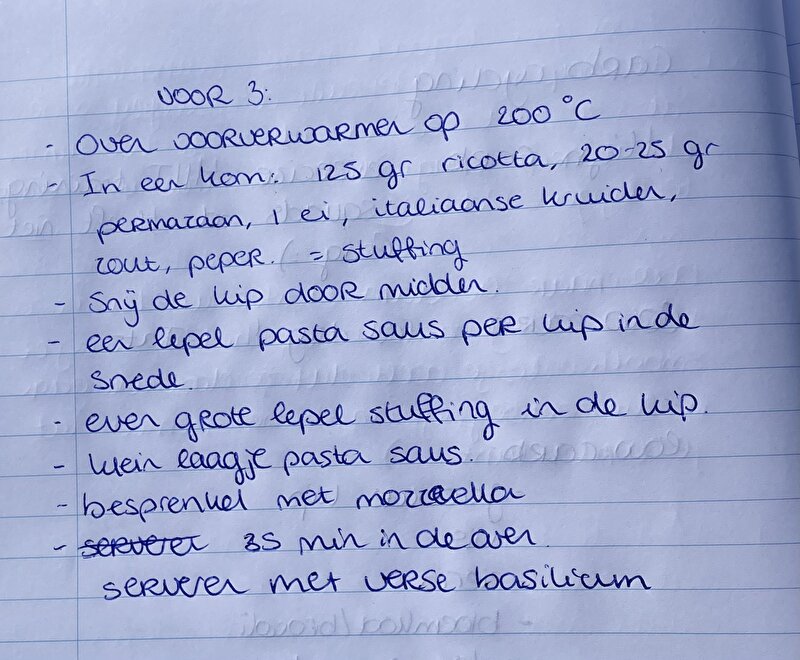 VOOR 3:
- Oven voorverwarmen op 200 °C
- In een kom: 125 gr ricotta, 20-25 gr
permazaan, 1 ei, italiaanse kruiden,
zout, peper. ( = stuffing
- Snij de kip door midden.
- een lepel pasta saus per kip in de
snede.
- even grote lepel stuffing in de kip.
- klein laagje pasta saus.
- besprenkel met mozzarella
- serveren 35 min in de oven.
serveren met verse basilicum